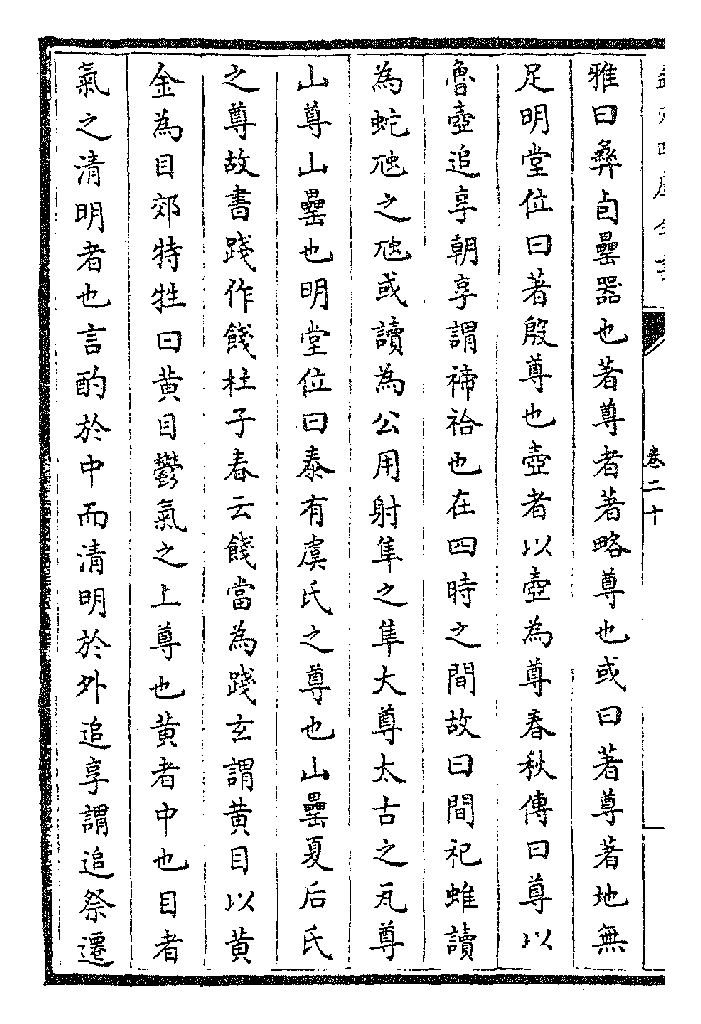 欽定四庫全書
卷二十
雅曰彝卣罍器也著尊者著略尊也或曰著尊著地無
足明堂位曰著殷尊也壺者以壺為尊春秋傳曰尊以
魯壺追享朝享謂禘祫也在四時之間故曰間祀蜼讀
為蛇虺之虺或讀為公用射隼之隼大尊太古之瓦尊
山尊山罍也明堂位曰泰有虞氏之尊也山罍夏后氏
之尊故書踐作餞杜子春云餞當為踐玄謂黄目以黄
金為目郊特牲曰黄目鬱氣之上尊也黄者中也目者
氣之清明者也言酌於中而清明於外追享謂追祭遷